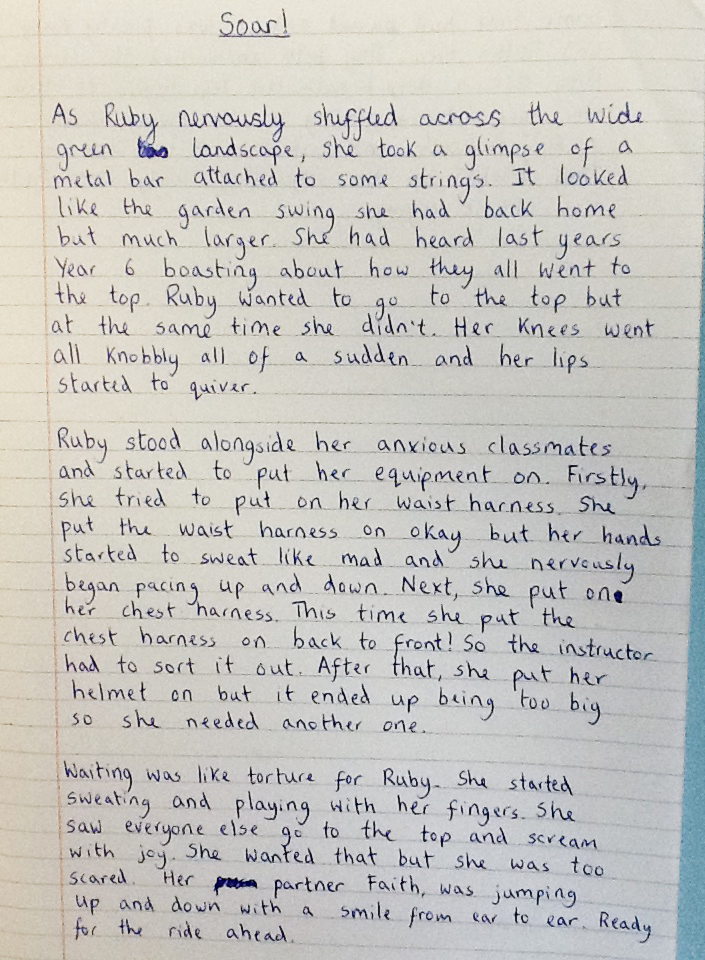 Soar!
As Ruby nervously shuffled across the wide
green landscape, she took a glimpse of a
metal bar attached to some strings. It looked
like the garden swing she had back home
but much larger. She had heard last years
Year 6 boasting about how they all went to
the top. Ruby wanted to go to the top but
at the same time she didn't. Her Knees went
all Knobbly all of a sudden and her lips
started to quiver.
Ruby stood alongside her anxious classmates
and started to put her equipment on. Firstly,
she tried to put on her waist harness. She
put the waist harness on okay but her hands
started to sweat like mad and she nervously
began pacing up and down. Next, she put on
her chest harness. This time she put the
chest harness on back to front! So the instructor
had to sort it out. After that, she put her
helmet on but it ended up being too big
so she needed another one.
Waiting was like torture for Ruby. She started
sweating and playing with her fingers. She
saw everyone else go to the top and scream
with joy. She wanted that but she was too
scared. Her partner Faith, was jumping
up and down with a smile from ear to ear. Ready
for the ride ahead.